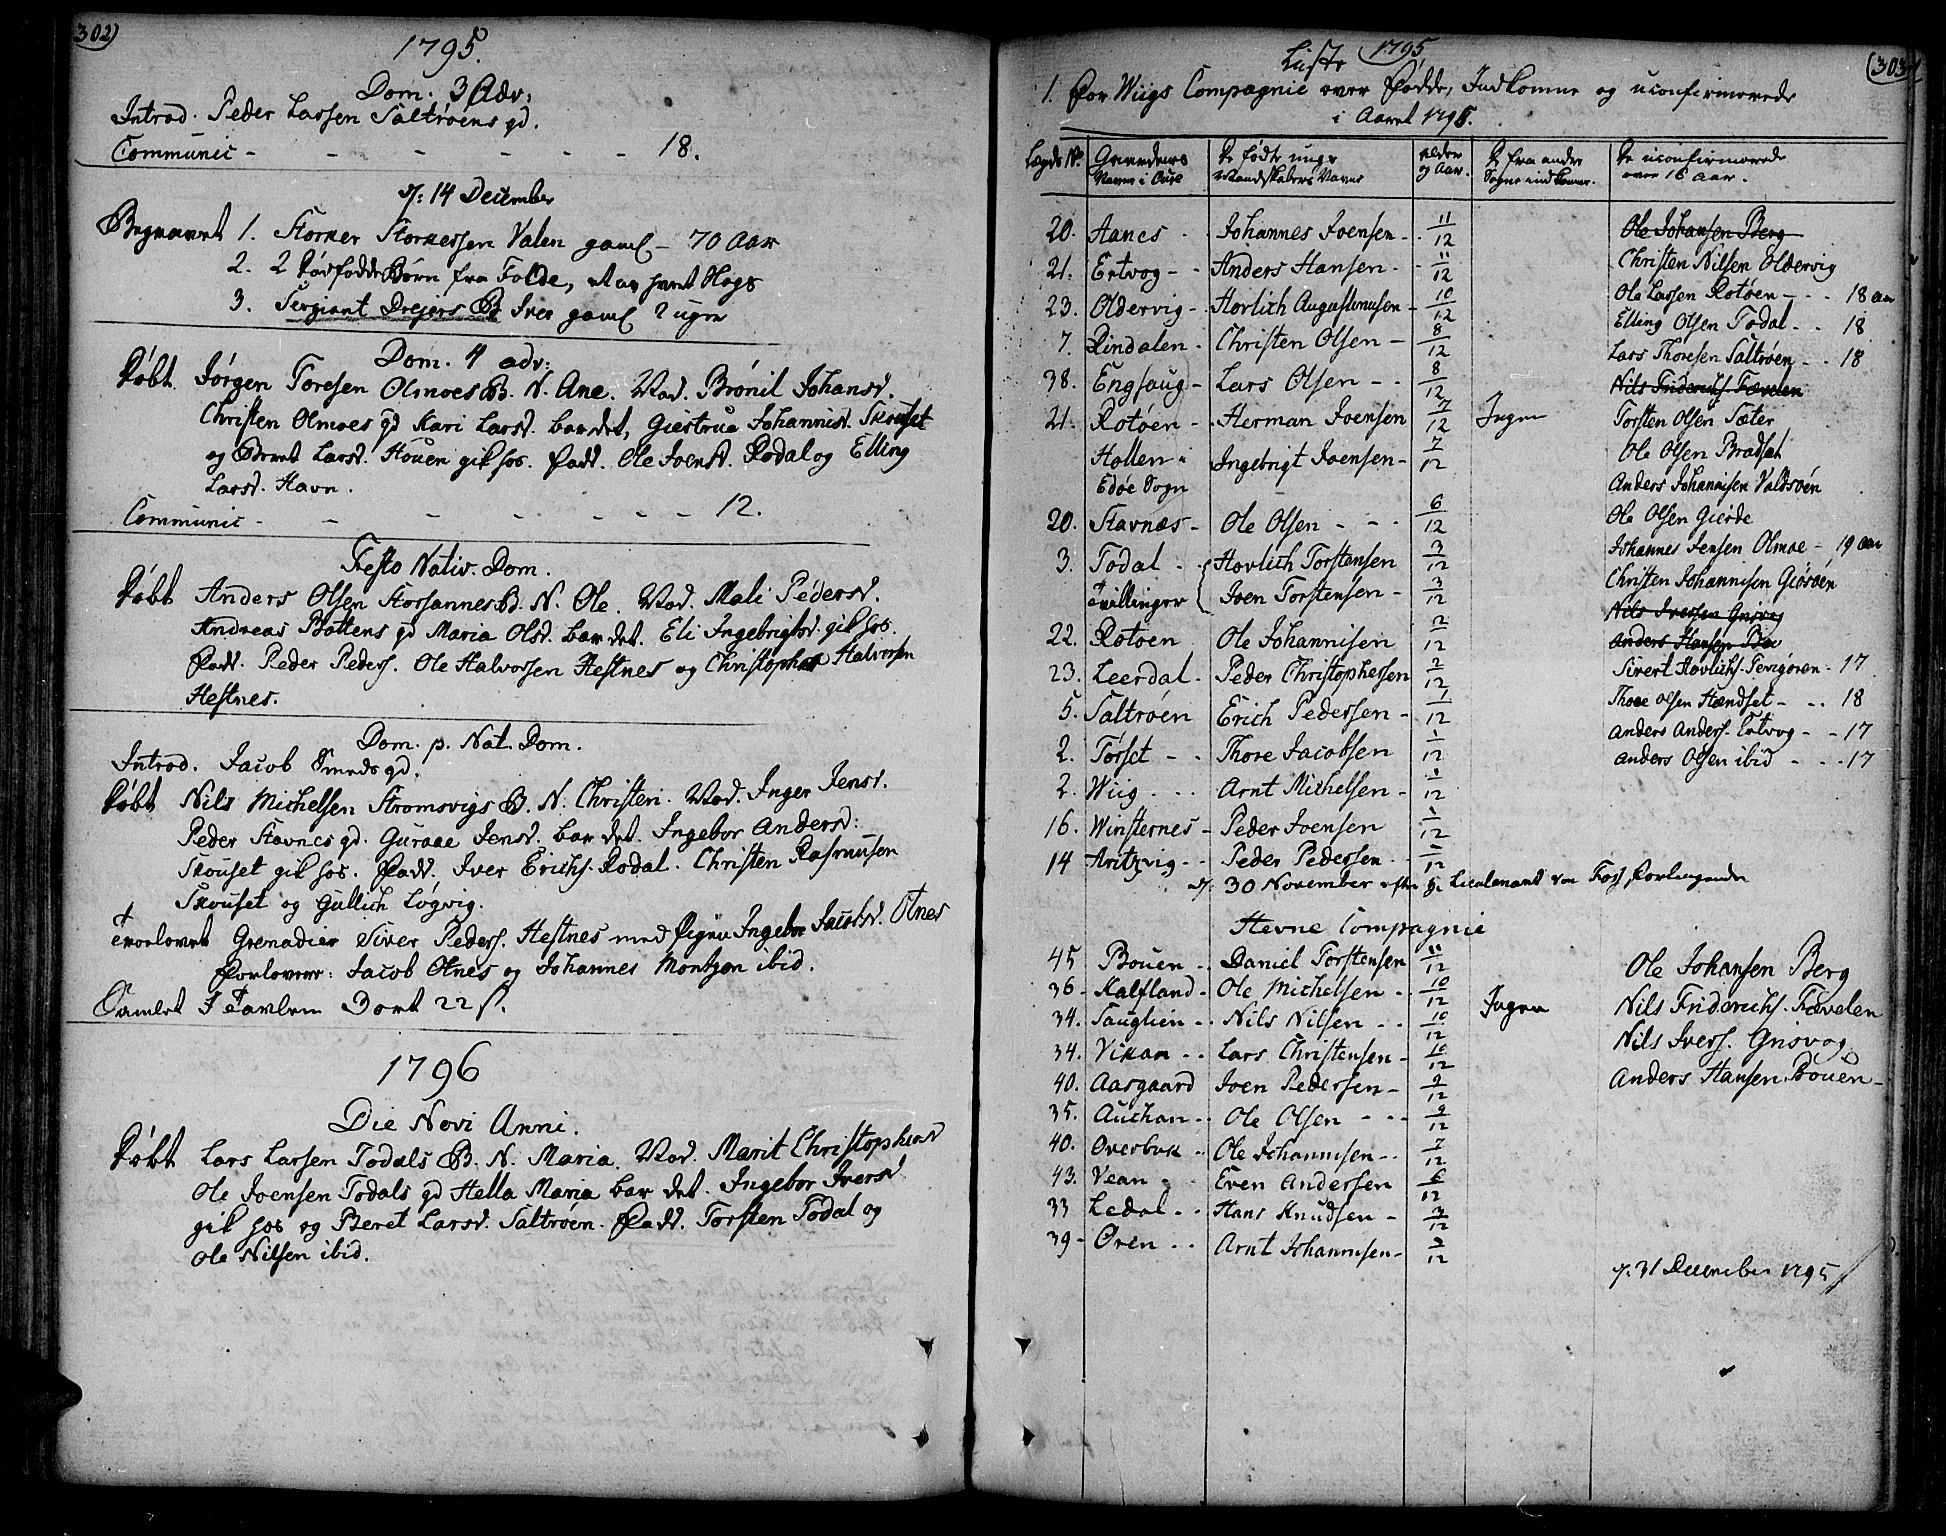 302)
1795.
Dom. 3 Adv:
Introd. Peder Larsen Saltrøens gd.
Communic - - - - - - - 18.
d: 14 December
Begravet 1. Storker Storkersen Valen gaml - 70 Aar
2. 2 dødfødde Børn fra Folde,
3. Sergiant Drejers B Iver gaml 2 uger
Dom. 4 adv:
Døbt Jørgen Toresen Olmoes B. N. Ane. Mod. Brønil Johansd.
Christen Olmoes gd Kari Larsd. bar det, Giertrue Johannisd. Skouset
og Beret Larsd. Houen gik hos. Fadd. Ole Joensd. Rodal og Elling
Larsd. Havn.
Communic - - - - - - - 12.
Festo Nativ. Dom.
Døbt Anders Olsen Storsannes B. N. Ole. Mod. Mali Pedersd.
Andreas Bottens gd Maria Olsd. bar det. Eli Ingebrigtsd. gik hos.
Fadd. Peder Peders. Ole Halvorsen Hestnes og Christopher Halvorsen
Hestnes.
Dom. p. Nat. Dom.
Introd. Jacob Smeds gd.
Døbt Nils Michelsen Stromsvigs B. N. Christen. Mod. Inger Jensd.
Peder Stavnes gd. Guraae Jensd. bar det. Ingebor Andersd:
Skouset gik hos. Fadd. Iver Erichs. Rodal. Christen Rasmusen
Skouset og Gullich Løgvig.
Troelovet Grenadier Siver Peders. Hestnes med Pigen Ingebor Jacobsd. Otnes
Forlovere: Jacob Otnes og Johannes Montzen ibid.
Samlet I Tavlen 3 ort 22 s.
1796
Die Novi Anni.
Døbt Lars Larsen Todals B. N. Maria. Mod. Marit Christophersd
Ole Joensen Todals gd Hella Maria bar det. Ingebor Iversd.
gik hos og Beret Larsd. Saltrøen. Fadd. Torsten Todal og
Ole Nilsen ibid.
(303
Liste 1795
1. For Wiigs Compagnie over Fødde, Indkomne og uconfirmerede
i Aaret 1795.
Lægds No. Gaardens Navn i Oure De fødte unge Mandskabers Navne Alder og Aar. De fra andre Sogne indkomne. De uconfirmerede over 16 aar.
20. Aanes - Johannes Joensen - 11/12 Ole Johansen Berg
21. Ertvog - Anders Hansen - 11/12 Christen Nilsen Oldervig
23. Oldervig - Hovlich Augustinusen - 10/12 Ole Larsen Rotøen - - 18 aar
7. Rindalen - Christen Olsen - 8/12 Elling Olsen Todal - - 18
38. Engsaug - Lars Olsen - - 8/12 Lars Thoresen Saltrøen - - 18
Nils Friderichs Fævelen
21. Rotøen - Herman Joensen 7/12 Ingen Torsten Olsen Sæter
Hollen i Edøe Sogn Ingebrigt Joensen - 7/12 Ole Olsen Bradset
Anders Johannisen Valdsøen
20. Stavnæs - Ole Olsen - - - 6/12 Ole Olsen Gierde
3. Todal - Hovlich Torstensen 3/12 Johannes Jensen Olmoe - 19 aar
Tvillinger Joen Torstensen - 3/12 Christen Johannisen Giøsøen
Nils Iversen Grisvog
22. Rotoen Ole Johannisen 2/12 Anders Hansen Boe
23. Leerdal - Peder Christophersen 2/12 Sivert Hovlichs. - 17
5. Saltrøen Erich Pedersen - 1/12 Thore Olsen Stændset - - 18
2. Torset - - Thore Jacobsen 1/12 Anders Anders. Ertvog - - 17
2. Wiig - - - Arnt Michelsen - 1/12 Anders Olsen ibid - - - 17
16. Winsternes - Peder Joensen 1/12
14 Aritzvig - - Peder Pedersen - - 1/12
d: 30 November efter Hr Lieutenant von Foss Forlangende
Hevne Compagnie
45 Bouen - - Daniel Torstensen 11/12 Ole Johansen Berg
36 - Kalfland - Ole Michelsen - - 10/12 Ingen Nils Friderichs. Fævelen
34. Sauglien - - Nils Nilsen - - 10/12 Nils Ivers. Grisvog
34. Vikan - - Lars Christensen - 10/12 Anders Hansen Bouen -
40. Aasgaard Joen Pedersen - 9/12
35. Auchan - - Ole Olsen - - - 9/12
40. Overbuk - Ole Johannisen - - 7/12
43. Vean - - Even Andersen 6/12
33 Ledal - - Hans Knudsen - 3/12
39 - Øren - - Arnt Johannisen - 3/12
d. 31 December 1795